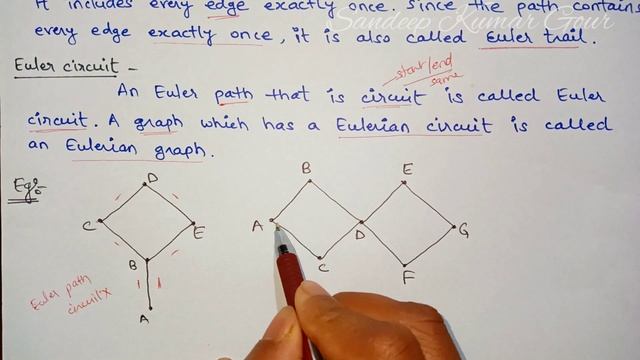 It includes every edge exactly once. Since the path contains
every edge exactly once, it is also called Euler trail.
Sandeep Kumar Gour
Euler circuit -
start/end
same
An Euler path that is circuit is called Euler
circuit. A graph which has a Eulerian circuit is called
an Eulerian graph.
Eg:-
D
C
E
B
A
Euler path
circuit ×
B
E
A
D
G
C
F